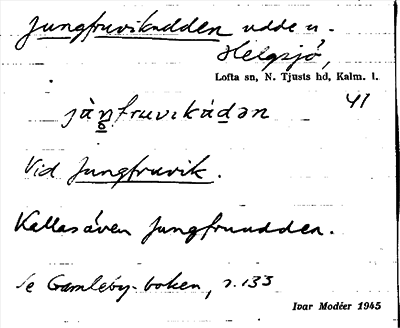 Jungfruvikudden udde n.
Helgsjö,
Lofta sn, N. Tjusts hd, Kalm. l.
41
jàŋfruvikádən
Vid Jungfruvik.
Kallas även Jungfruudden.
Se Gamleby-boken, s. 133
Ivar Modéer 1945